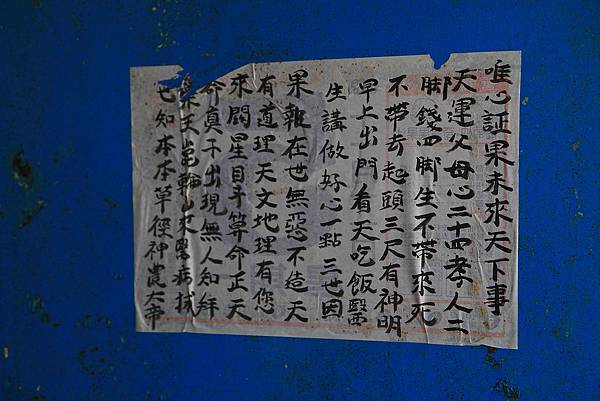 唯心証果未來天下事
天運父母心二十四孝人二
脚錢四脚生不帶來死
不帶去起頭三尺有神明
早上出門看天吃飯醫
生講做好心一點三世因
果報在世無惡不造天
有道理天文地理有您
來問星目斗算命正天
命真不出現無人知拜
樂王崑輪山來醫病拭
也知本本草徑神農大帝